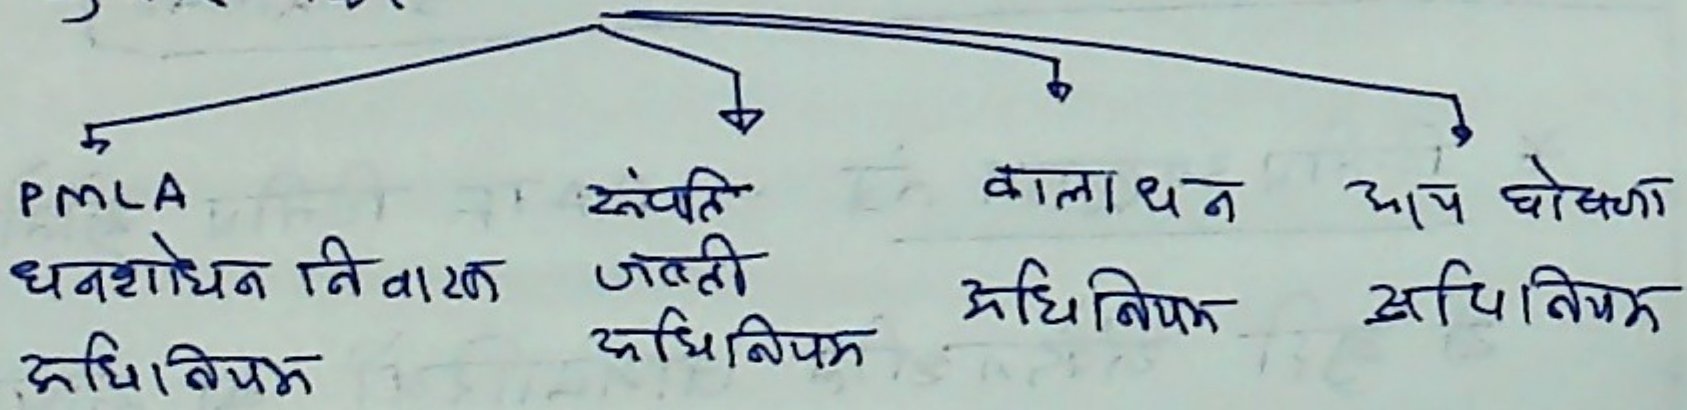 PMLA
धनशोधन निवारक
अधिनियम
संपति
जब्ती
अधिनियम
कालाधन
अधिनियम
आय घोषणा
अधिनियम